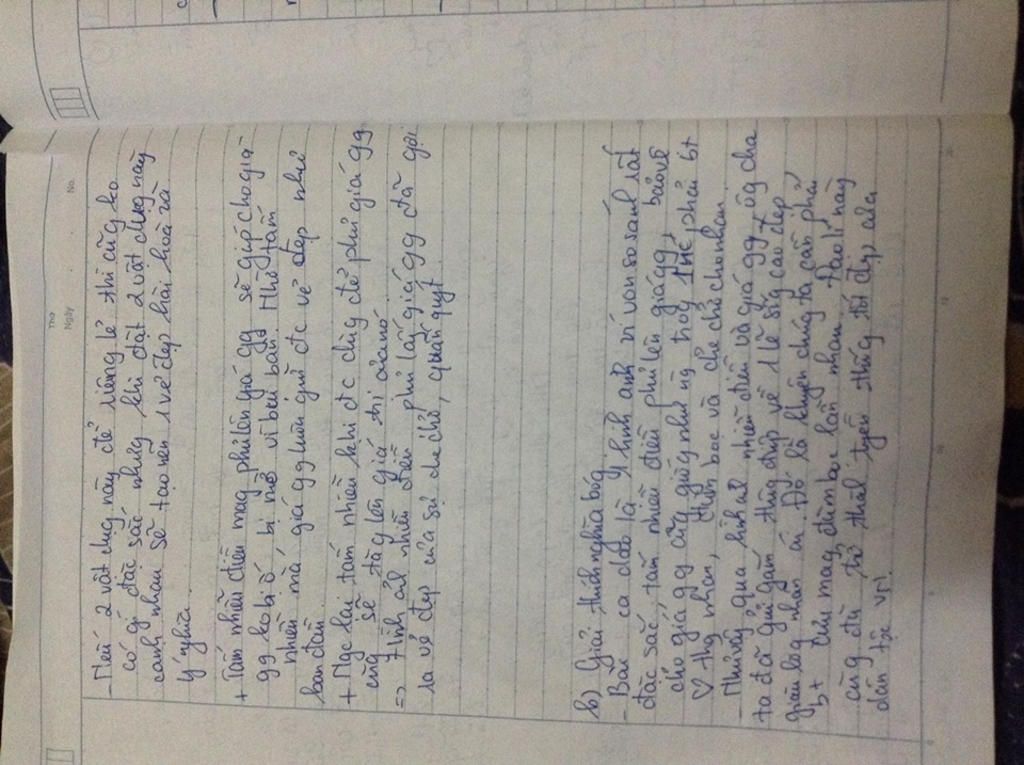 Thứ
Ngày
No.
- Nếu 2 vật dụng này để riêng lẻ thì cũng ko
có gì đặc sắc nhưng khi đặt 2 vật dụng này
cạnh nhau sẽ tạo nên 1 vẻ đẹp hài hoà và
ý nghĩa.
+ Tấm nhiễu điều mag phủ lên giá gg sẽ giúp cho giá
gg ko bị ố, bị mờ vì bụi bẩn. Nhờ tấm
nhiễu mà giá gg luôn giữ đc vẻ đẹp như
ban đầu
+ Ngc lại tấm nhiễu khi đc dùg để phủ giá gg
cũng sẽ tăg lên giá trị của nó
=> Hình ảnh nhiễu điều phủ lấy giá gg đã gợi
ra vẻ đẹp của sự che chở, quấn quýt
b) Giải thích nghĩa bóg
- Bài ca dao là ~ hình ảnh ví von so sánh rất
đặc sắc tấm nhiễu điều phủ lên giá gg, bảo vệ
cho giá gg cũg giốg như ng trog 1 nc phải bt
♡ thg nhau, đùm bọc và che chở cho nhau.
- Như vậy qua hình ảnh nhiễu điều và giá gg ~ ôg cha
ta đã gửi gắm thôg điệp về 1 lẽ sốg cao đẹp
giàu lòg nhân ái. Đó là khuyên chúng ta cần phải
bt cưu mag, đùm bọc lẫn nhau. Đạo lí này
cũg chí truyền thốg tốt đẹp của
dân tộc VN.